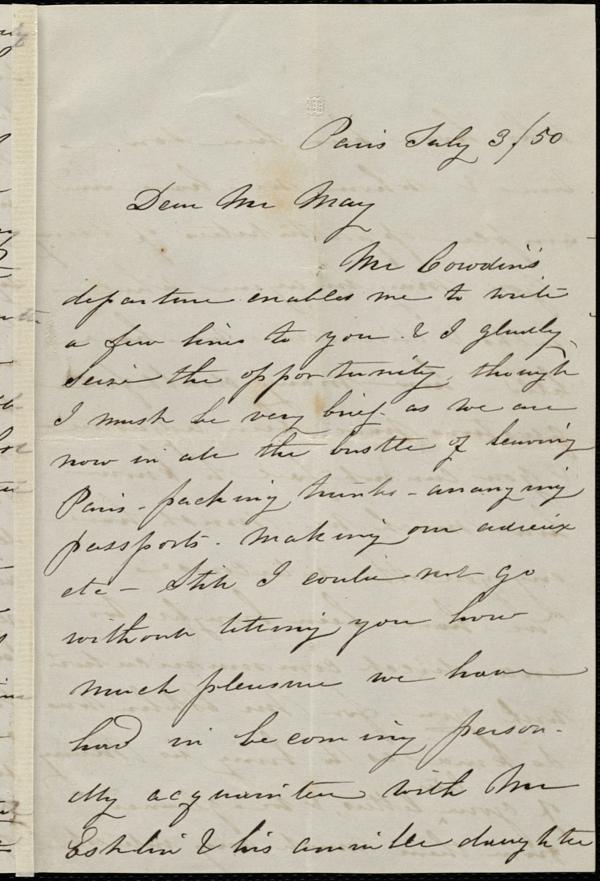 Paris July 3/50
Dear Mr May
Mr Cowdin's
departure enables me to write
a few lines to you. & I gladly
seize the opportunity, though
I must be very brief as we are
now in all the bustle of leaving
Paris - packing trunks - arranging
passports. making our adieux
etc - Still I could not go
without telling you how
much pleasure we have
had in becoming person-
ally acquainted with Mr
Estlin & his amiable daughter